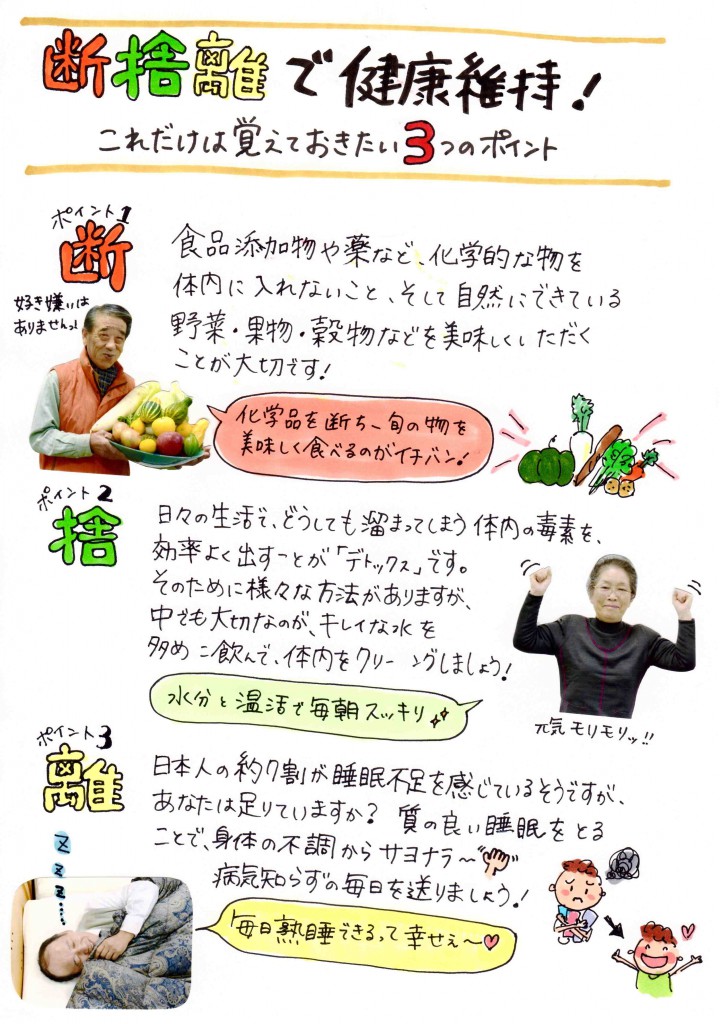 断捨離で健康維持！
これだけは覚えておきたい3つのポイント
ポイント1
断
好き嫌いは
ありませんっ！
食品添加物や薬など、化学的な物を
体内に入れないこと、そして自然にできている
野菜・果物・穀物などを美味しくいただく
ことが大切です！
化学品を断ち、旬の物を
美味しく食べるのがイチバン！
ポイント2
捨
日々の生活で、どうしても溜まってしまう体内の毒素を、
効率よく出すことが「デトックス」です。
そのために様々な方法がありますが、
中でも大切なのが、キレイな水を
多めに飲んで、体内をクリーニングしましょう！
水分と温活で毎朝スッキリ
元気モリモリッ!!
ポイント3
離
日本人の約7割が睡眠不足を感じているそうですが、
あなたは足りていますか？ 質の良い睡眠をとる
ことで、身体の不調からサヨナラ〜
病気知らずの毎日を送りましょう！
ZZZ…
毎日熟睡できるって幸せぇ〜♡